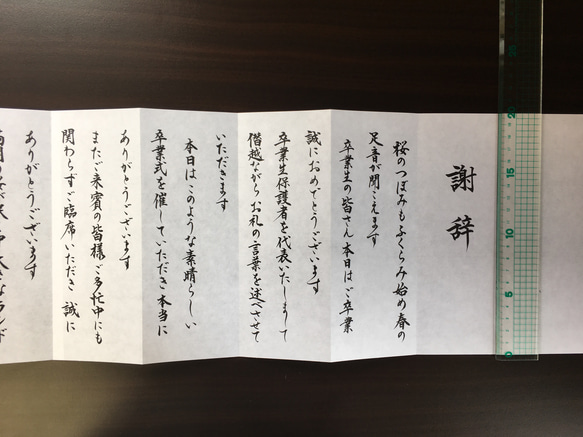 謝辞
桜のつぼみもふくらみ始め春の
足音が聞こえます
卒業生の皆さん本日はご卒業
誠におめでとうございます
卒業生保護者を代表いたしまして
僭越ながらお礼の言葉を述べさせて
いただきます
本日はこのような素晴らしい
卒業式を催していただき本当に
ありがとうございます
またご来賓の皆様ご多忙中にも
関わらずご臨席いただき誠に
ありがとうございます
20
15
10
5
0